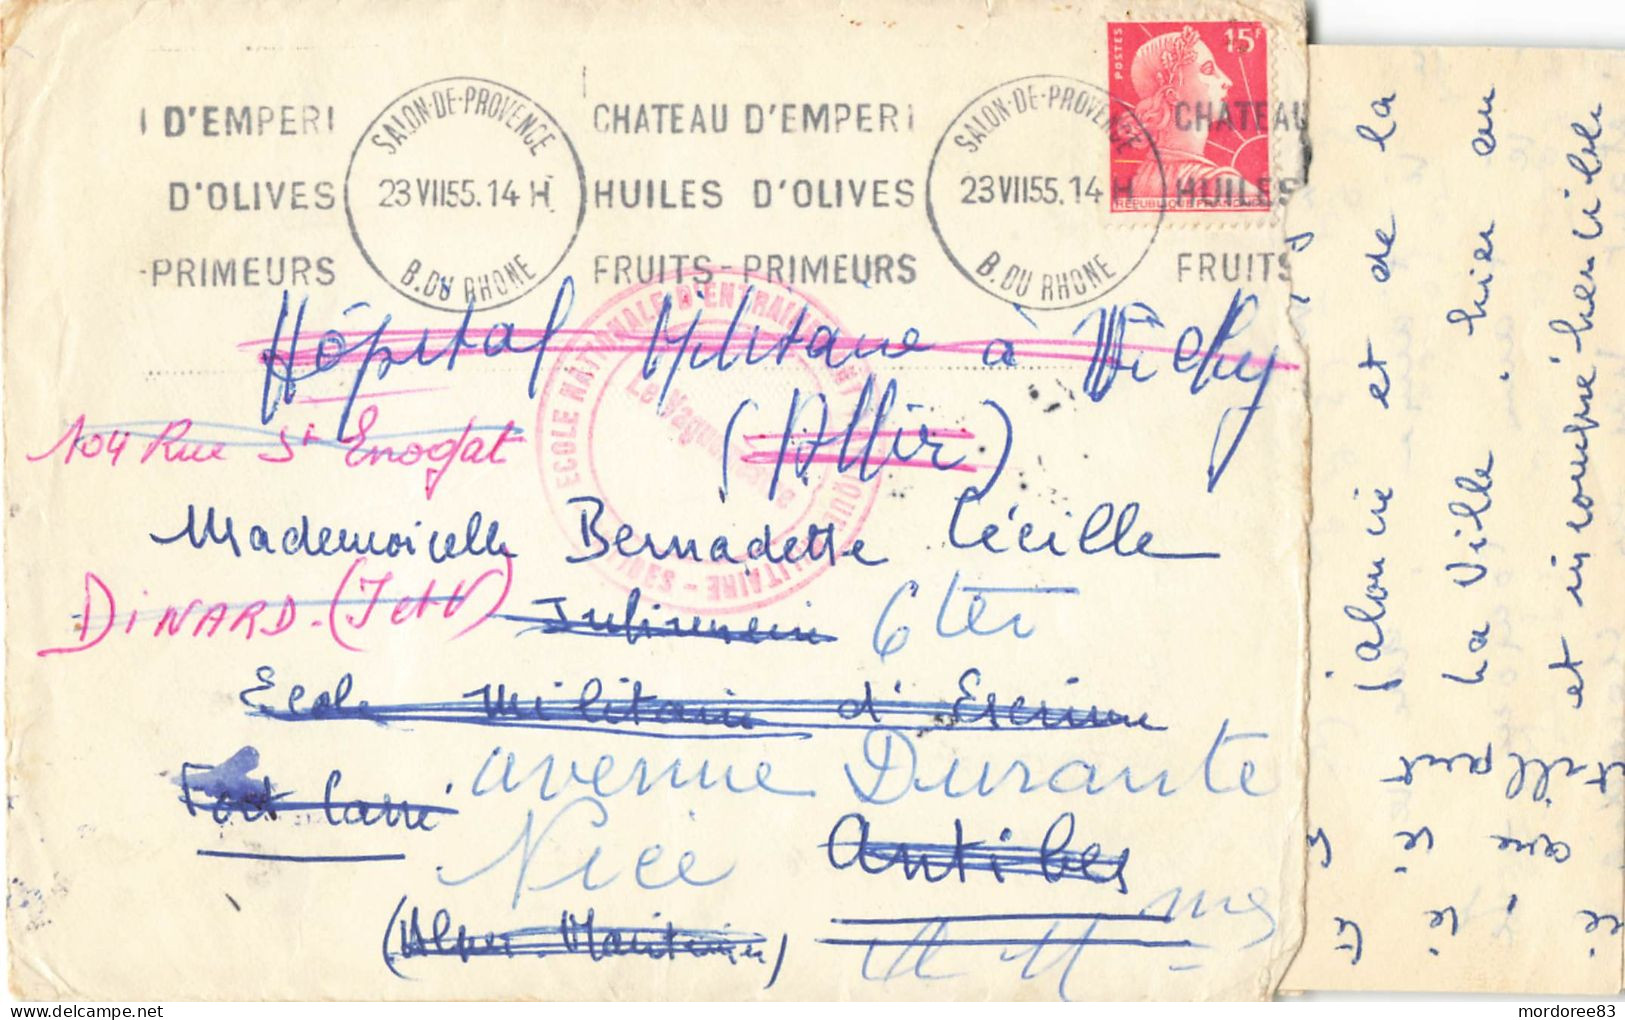 I D'EMPERI
D'OLIVES
-PRIMEURS
SALON-DE-PROVENCE
23 VII55.14 H.
B. DU RHONE
CHATEAU D'EMPERI
HUILES D'OLIVES
FRUITS-PRIMEURS
SALON-DE-PROVENCE
23 VII55.14 H
B. DU RHONE
CHATEAU
HUILES
FRUITS
POSTES
15F
REPUBLIQUE FRANCAISE
Hôpital Militaire à Vichy
(Allier)
ECOLE NATIONALE D'ENTRAINEMENT
Le Vaguemestre
104 Rue St Enogat
Mademoiselle Bernadette Cécille
DiNARD-(I et V)
6 ter
Ecole Militaire d'Escrime
Fort Carré
avenue Durante
Nice
Antibes
(Alpes Maritimes)
A Mmes
jalousie et de la
La Ville. hier au
et incompréhensible
mordoree83